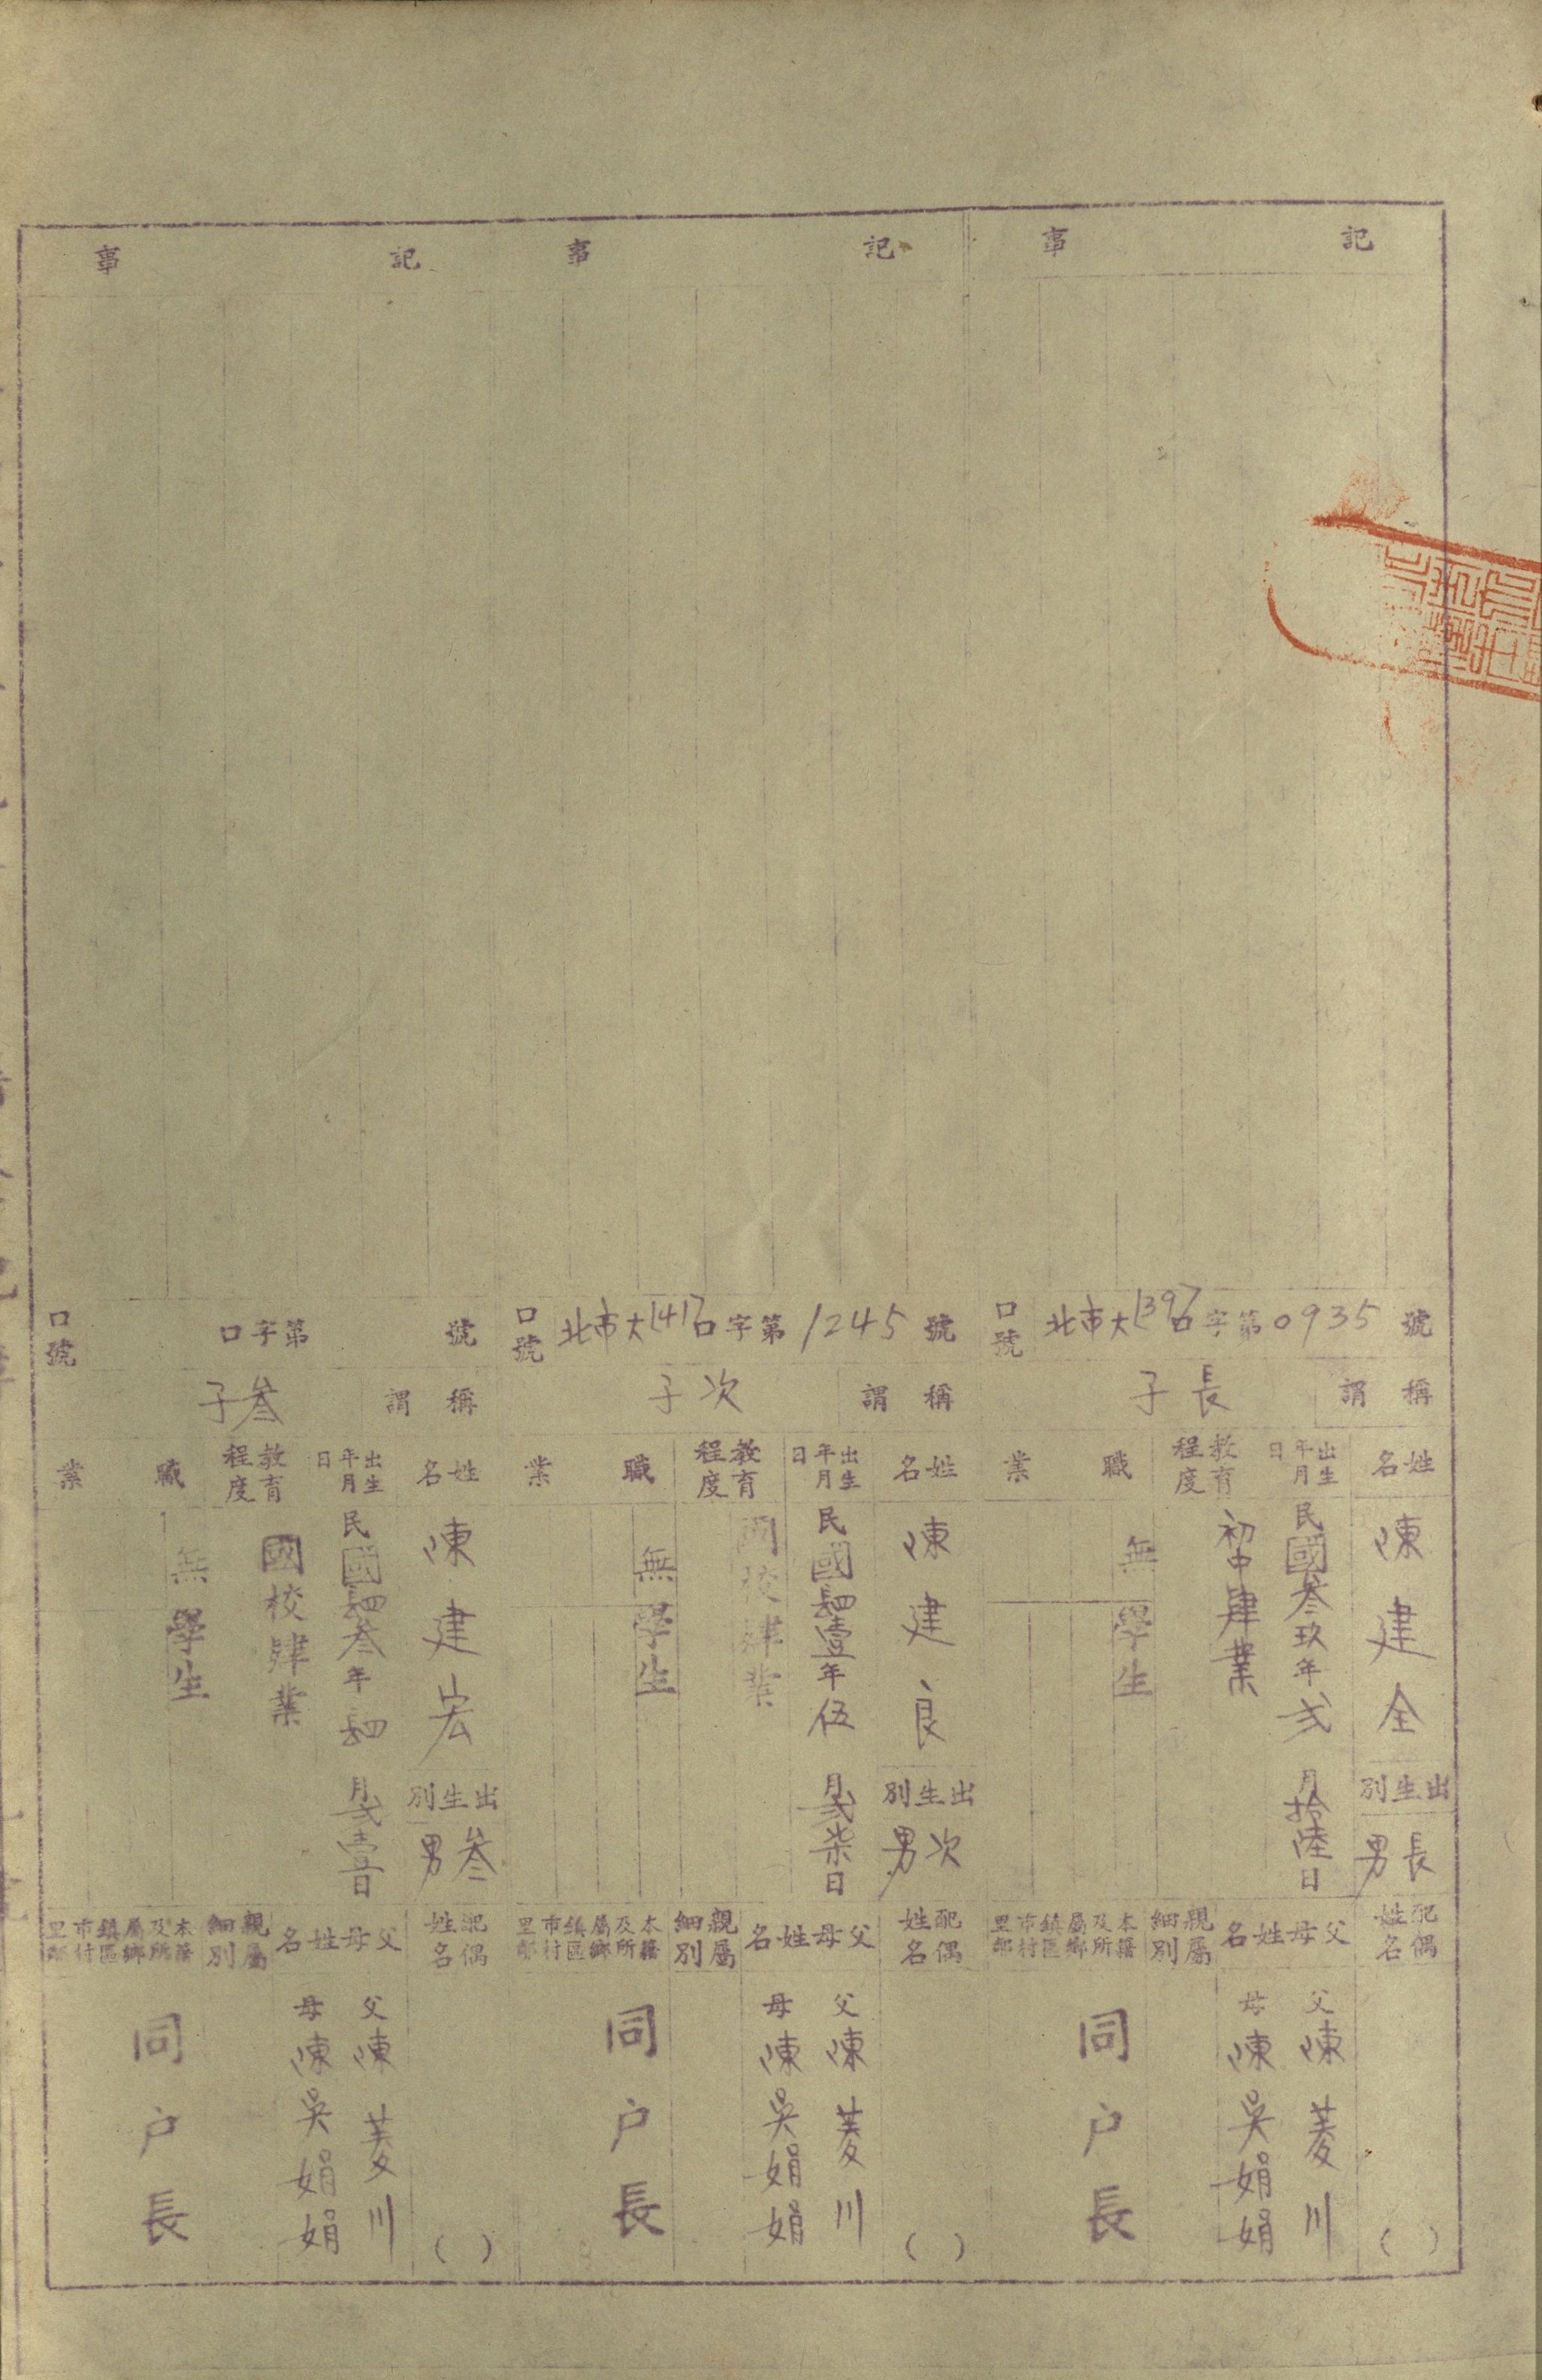 記事
口號
北市大1397口字第0935號
稱謂
長子
姓名
陳建全
出生別
長男
出生年月日
民國叁玖年弍月拾陸日
教育程度
初中肄業
職業
無
學生
配偶姓名
( )
父母姓名
父陳菱川
母陳吳娟娟
親屬細別
本籍及所屬鄉鎮區市村里鄰
同戶長
記事
口號
北市大1417口字第1245號
稱謂
次子
姓名
陳建良
出生別
次男
出生年月日
民國肆壹年伍月弍柒日
教育程度
國校肄業
職業
無
學生
配偶姓名
( )
父母姓名
父陳菱川
母陳吳娟娟
親屬細別
本籍及所屬鄉鎮區市村里鄰
同戶長
記事
口號
口字第號
稱謂
叁子
姓名
陳建宏
出生別
叁男
出生年月日
民國肆叁年肆月弍壹日
教育程度
國校肄業
職業
無
學生
配偶姓名
( )
父母姓名
父陳菱川
母陳吳娟娟
親屬細別
本籍及所屬鄉鎮區市村里鄰
同戶長